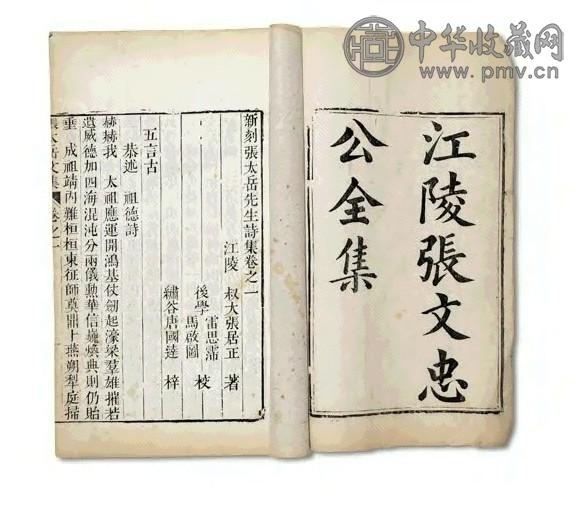 中华收藏网
www.pmv.cn
江陵張文忠
公全集
新刻張太岳先生詩集卷之一
江陵 叔大張居正 著
後學 雷思霈
馬啟圖 校
繡谷唐國達 梓
五言古
恭述 祖德詩
赫赫我 太祖應運開鴻基仗劒起濠梁羣雄摧若
遺威德加四海混沌分兩儀勲華信巍煥典則仍貽
垂 成祖靖内難桓桓東征師奠鼎卜燕朔犁庭掃
張太岳文集 卷之一